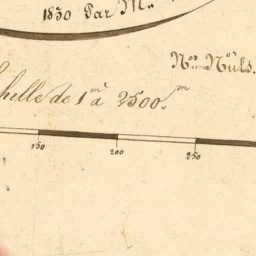 1830 Par M.
Nos Nuls.
helle de 1m à 2500m.
150 200 250